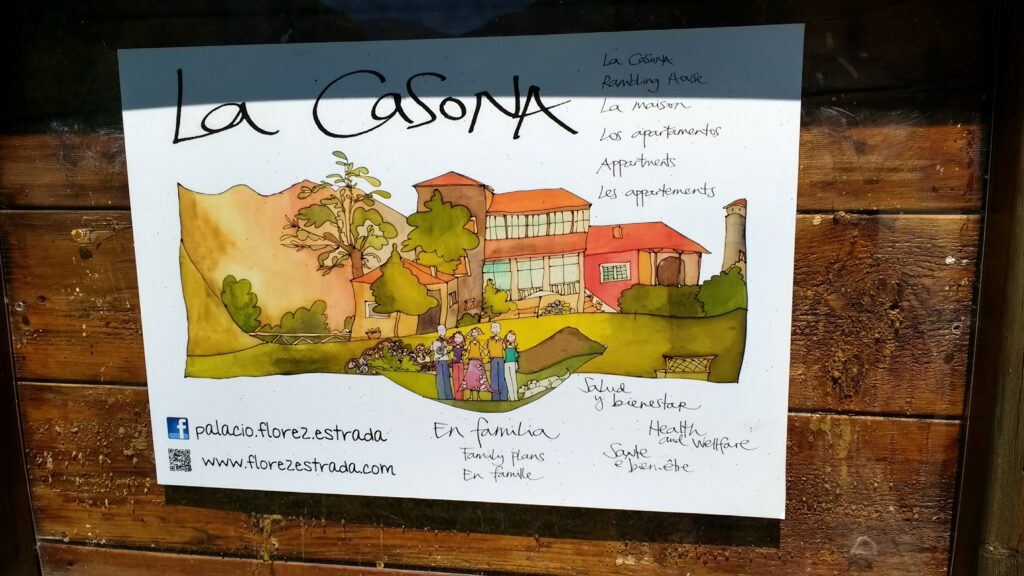 La Casona
La Casona
Rambling House
La maison
Los apartamentos
Appartments
Les appartements
Salud
y bienestar
Health
and Wellfare
Sante
e bien-être
En familia
Family plans
En famille
palacio.florez.estrada
www.florezestrada.com